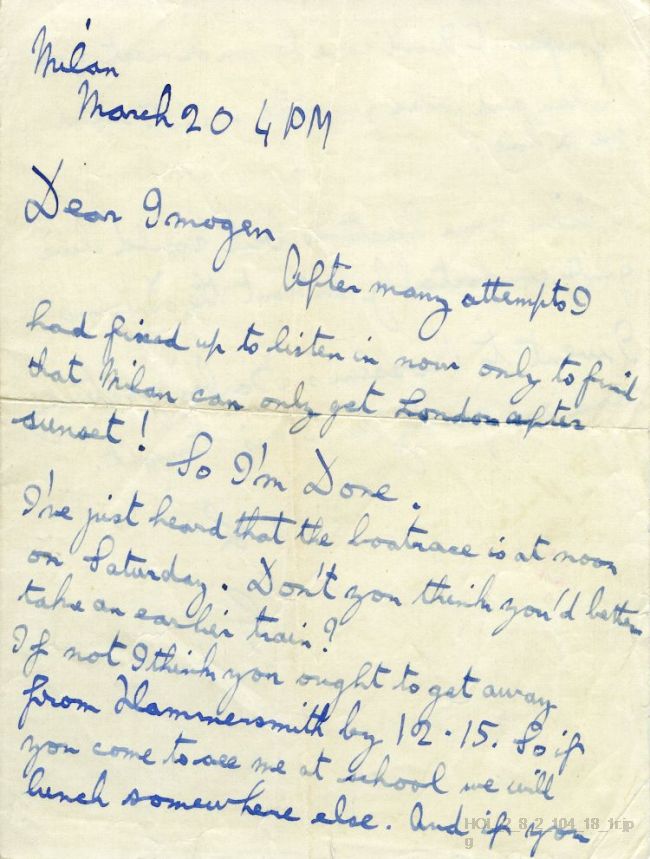 Milan
March 20 4 PM
Dear Imogen
After many attempts I
had fixed up to listen in now only to find
that Milan can only get London after
sunset!
So I'm Done.
I've just heard that the boatrace is at noon
on Saturday. Don't you think you'd better
take an earlier train?
If not I think you ought to get away
from Hammersmith by 12.15. So if
you come to see me at school we will
lunch somewhere else. And if you
HOL_2_8_2_104_18_1r.jp
g